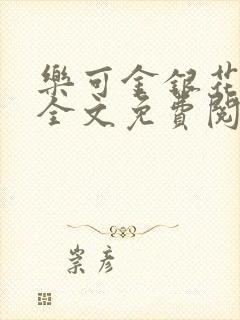 樂可金銀花
全文免費閱
崇彥